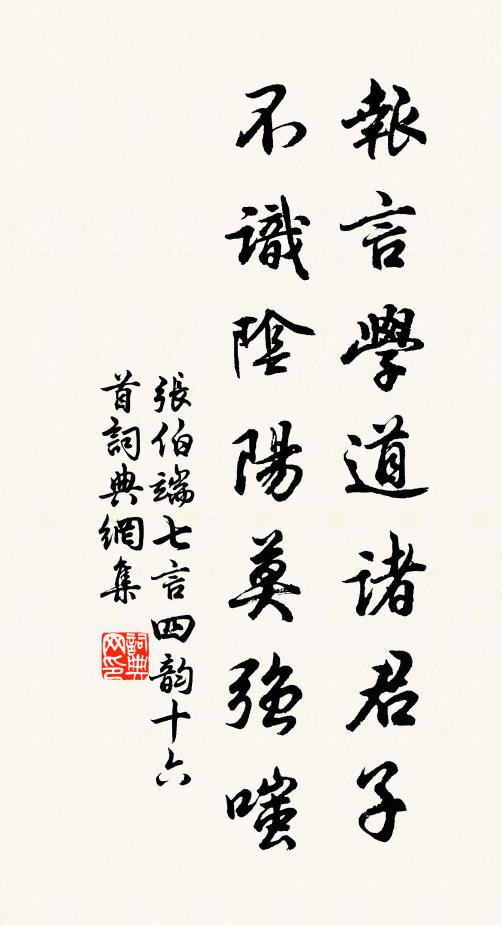 報言學道諸君子
不識陰陽莫強嗤
張伯端七言四韵十六
首詞典網集
詞典
网印